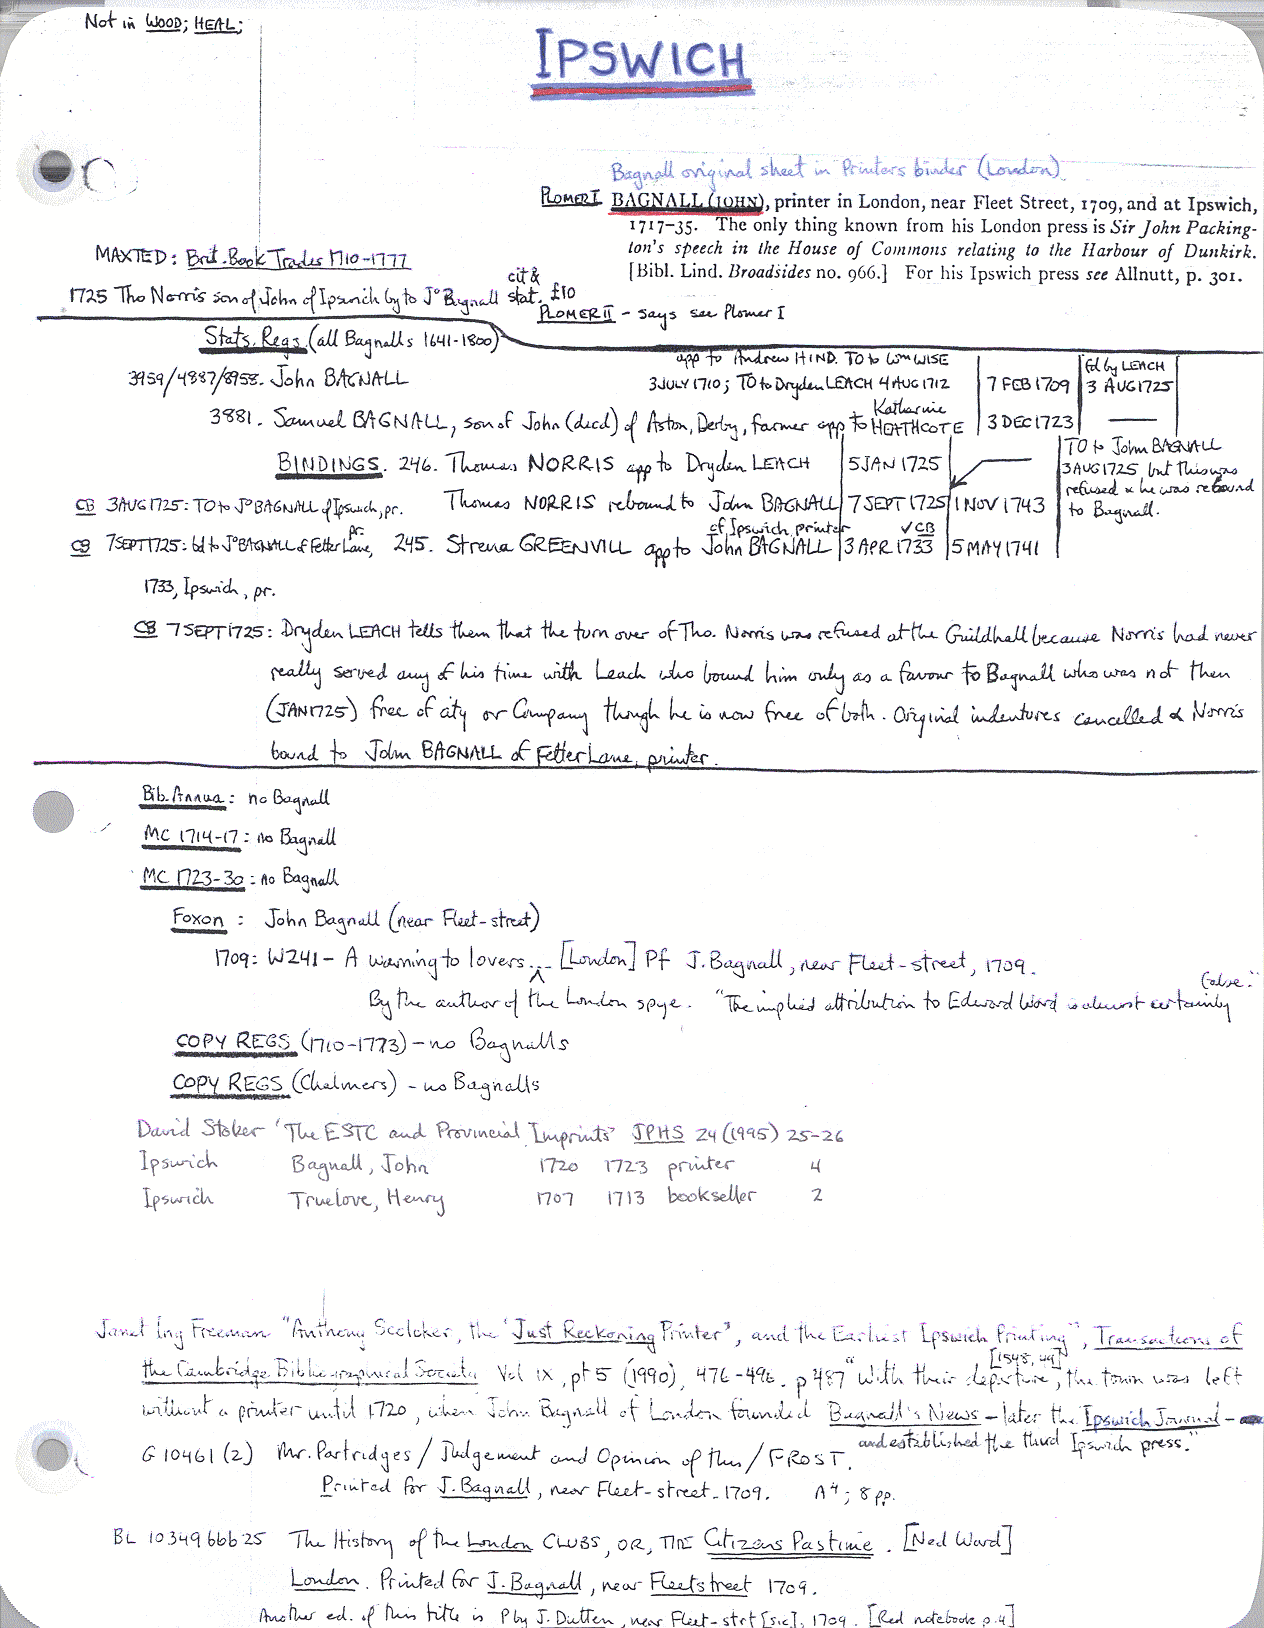 Not in WOOD; HEAL;
IPSWICH
Bagnall original sheet in Printers binder (London)
PLOMER I BAGNALL (JOHN), printer in London, near Fleet Street, 1709, and at Ipswich,
1717–35. The only thing known from his London press is Sir John Packing-
ton's speech in the House of Commons relating to the Harbour of Dunkirk.
[Bibl. Lind. Broadsides no. 966.] For his Ipswich press see Allnutt, p. 301.
MAXTED: Brit. Book Trades 1710-1777
cit &
1725 Tho Norris son of John of Ipswich by to Jº Bagnall stat. £10
PLOMER II - says see Plomer I
Stats. Regs. (all Bagnalls 1641-1800)
app to Andrew HIND. TO to Wm WISE
fd by LEACH
3959/4887/8958. John BAGNALL 3 JULY 1710; TO to Dryden LEACH 4 AUG 1712 7 FEB 1709 3 AUG 1725
Katharine
3881. Samuel BAGNALL, son of John (decd) of Aston, Derby, farmer app to HEATHCOTE 3 DEC 1723 —
BINDINGS. 246. Thomas NORRIS app to Dryden LEACH 5 JAN 1725
TO to John BAGNALL
3 AUG 1725 but this was
refused & he was rebound
to Bagnall.
CB 3 AUG 1725: TO to Jº BAGNALL of Ipswich, pr. Thomas NORRIS rebound to John BAGNALL 7 SEPT 1725 1 NOV 1743
of Ipswich printer ✓CB
pr.
CB 7 SEPT 1725: bd to Jº BAGNALL of Fetter Lane, 245. Strena GREENVILL app to John BAGNALL 3 APR 1733 5 MAY 1741
1733, Ipswich, pr.
CB 7 SEPT 1725: Dryden LEACH tells them that the turn over of Tho. Norris was refused at the Guildhall because Norris had never
really served any of his time with Leach who bound him only as a favour to Bagnall who was not then
(JAN 1725) free of city or Company though he is now free of both. Original indentures cancelled & Norris
bound to John BAGNALL of Fetter Lane, printer.
Bib. Annua: no Bagnall
MC 1714-17: no Bagnall
MC 1723-30: no Bagnall
Foxon: John Bagnall (near Fleet-street)
1709: W241 - A warning to lovers... [London] Pf J. Bagnall, near Fleet-street, 1709.
false."
By the author of the London spye. "The implied attribution to Edward Ward is almost certainly
COPY REGS (1710-1773) - no Bagnalls
COPY REGS (Chalmers) - no Bagnalls
David Stoker 'The ESTC and Provincial Imprints' JPHS 24 (1995) 25-26
Ipswich Bagnall, John 1720 1723 printer 4
Ipswich Truelove, Henry 1707 1713 bookseller 2
Janet Ing Freeman "Anthony Scoloker, the 'Just Reckoning Printer', and the Earliest Ipswich Printing", Transactions of
[1548, 49]
the Cambridge Bibliographical Society Vol IX, pt 5 (1990), 476-496. p 487 "With their departure, the town was left
without a printer until 1720, when John Bagnall of London founded Bagnall's News - later the Ipswich Journal -
and established the third Ipswich press."
G 10461 (2) Mr. Partridges / Judgement and Opinion of this / FROST.
Printed for J. Bagnall, near Fleet-street. 1709. A⁴; 8 pp.
BL 10349 bbb 25 The History of the London CLUBS, OR, THE Citizens Pastime. [Ned Ward]
London. Printed for J. Bagnall, near Fleetstreet 1709.
Another ed. of this title is P by J. Dutten, near Fleet-strt [sic], 1709. [Red notebook p.4]